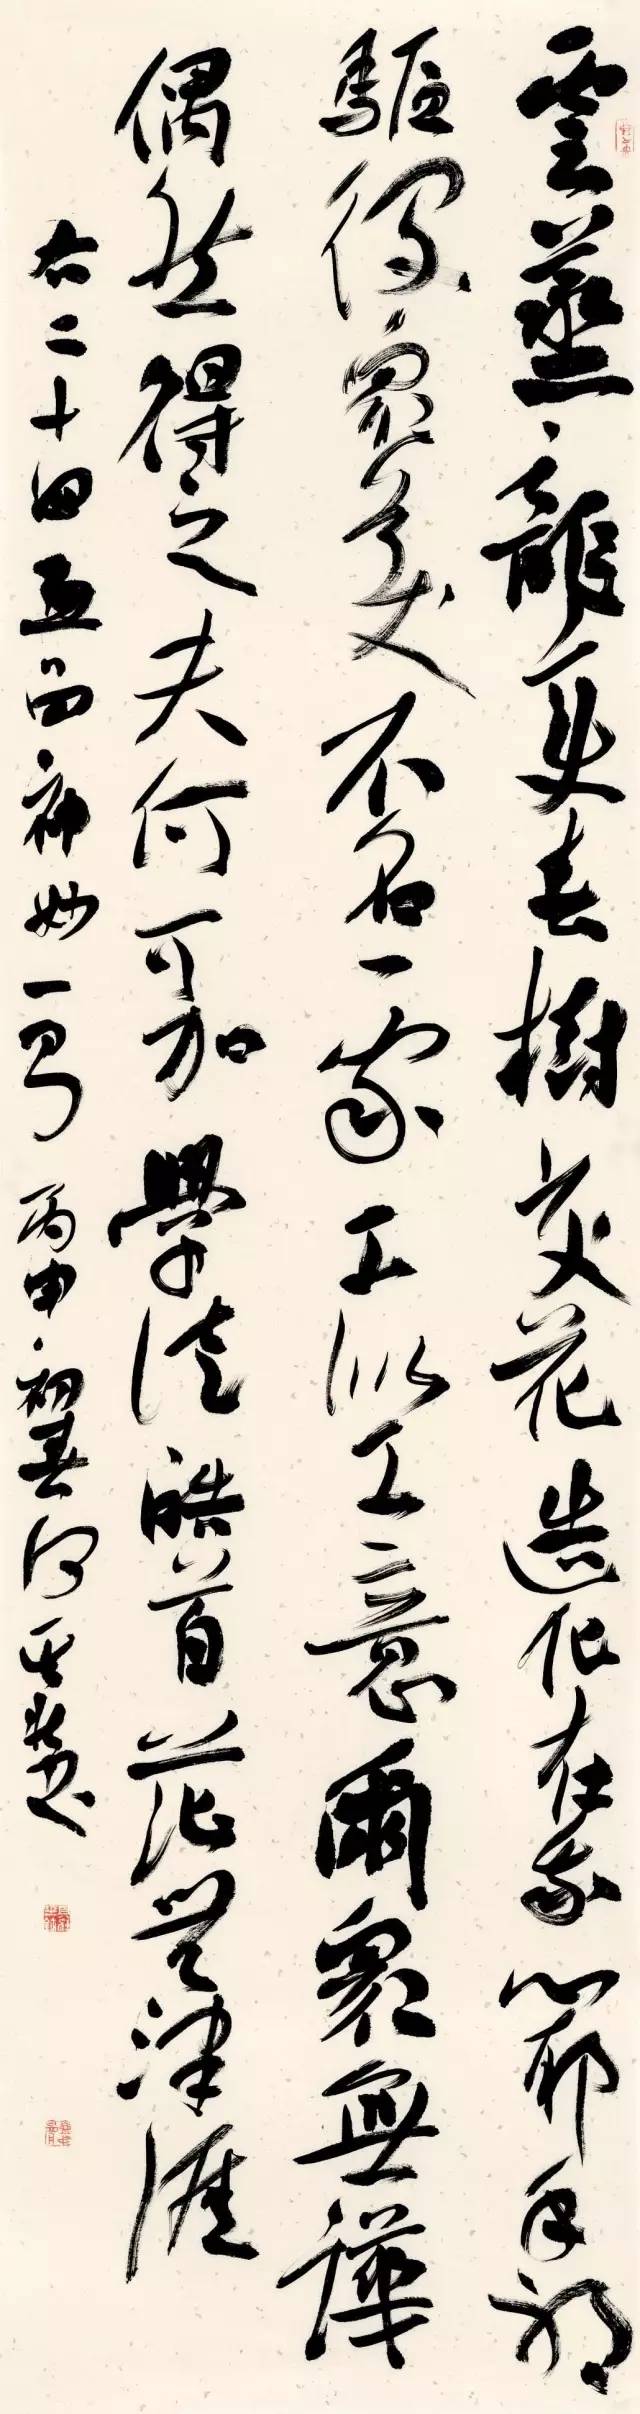 雲蒸龍變春樹交花造化在我心耶手耶
驅役眾美不名一家工似工意爾眾無譁
偶然得之夫何可加學徒皓首茫無津涯
右二十四畫品神妙一則丙申初春何